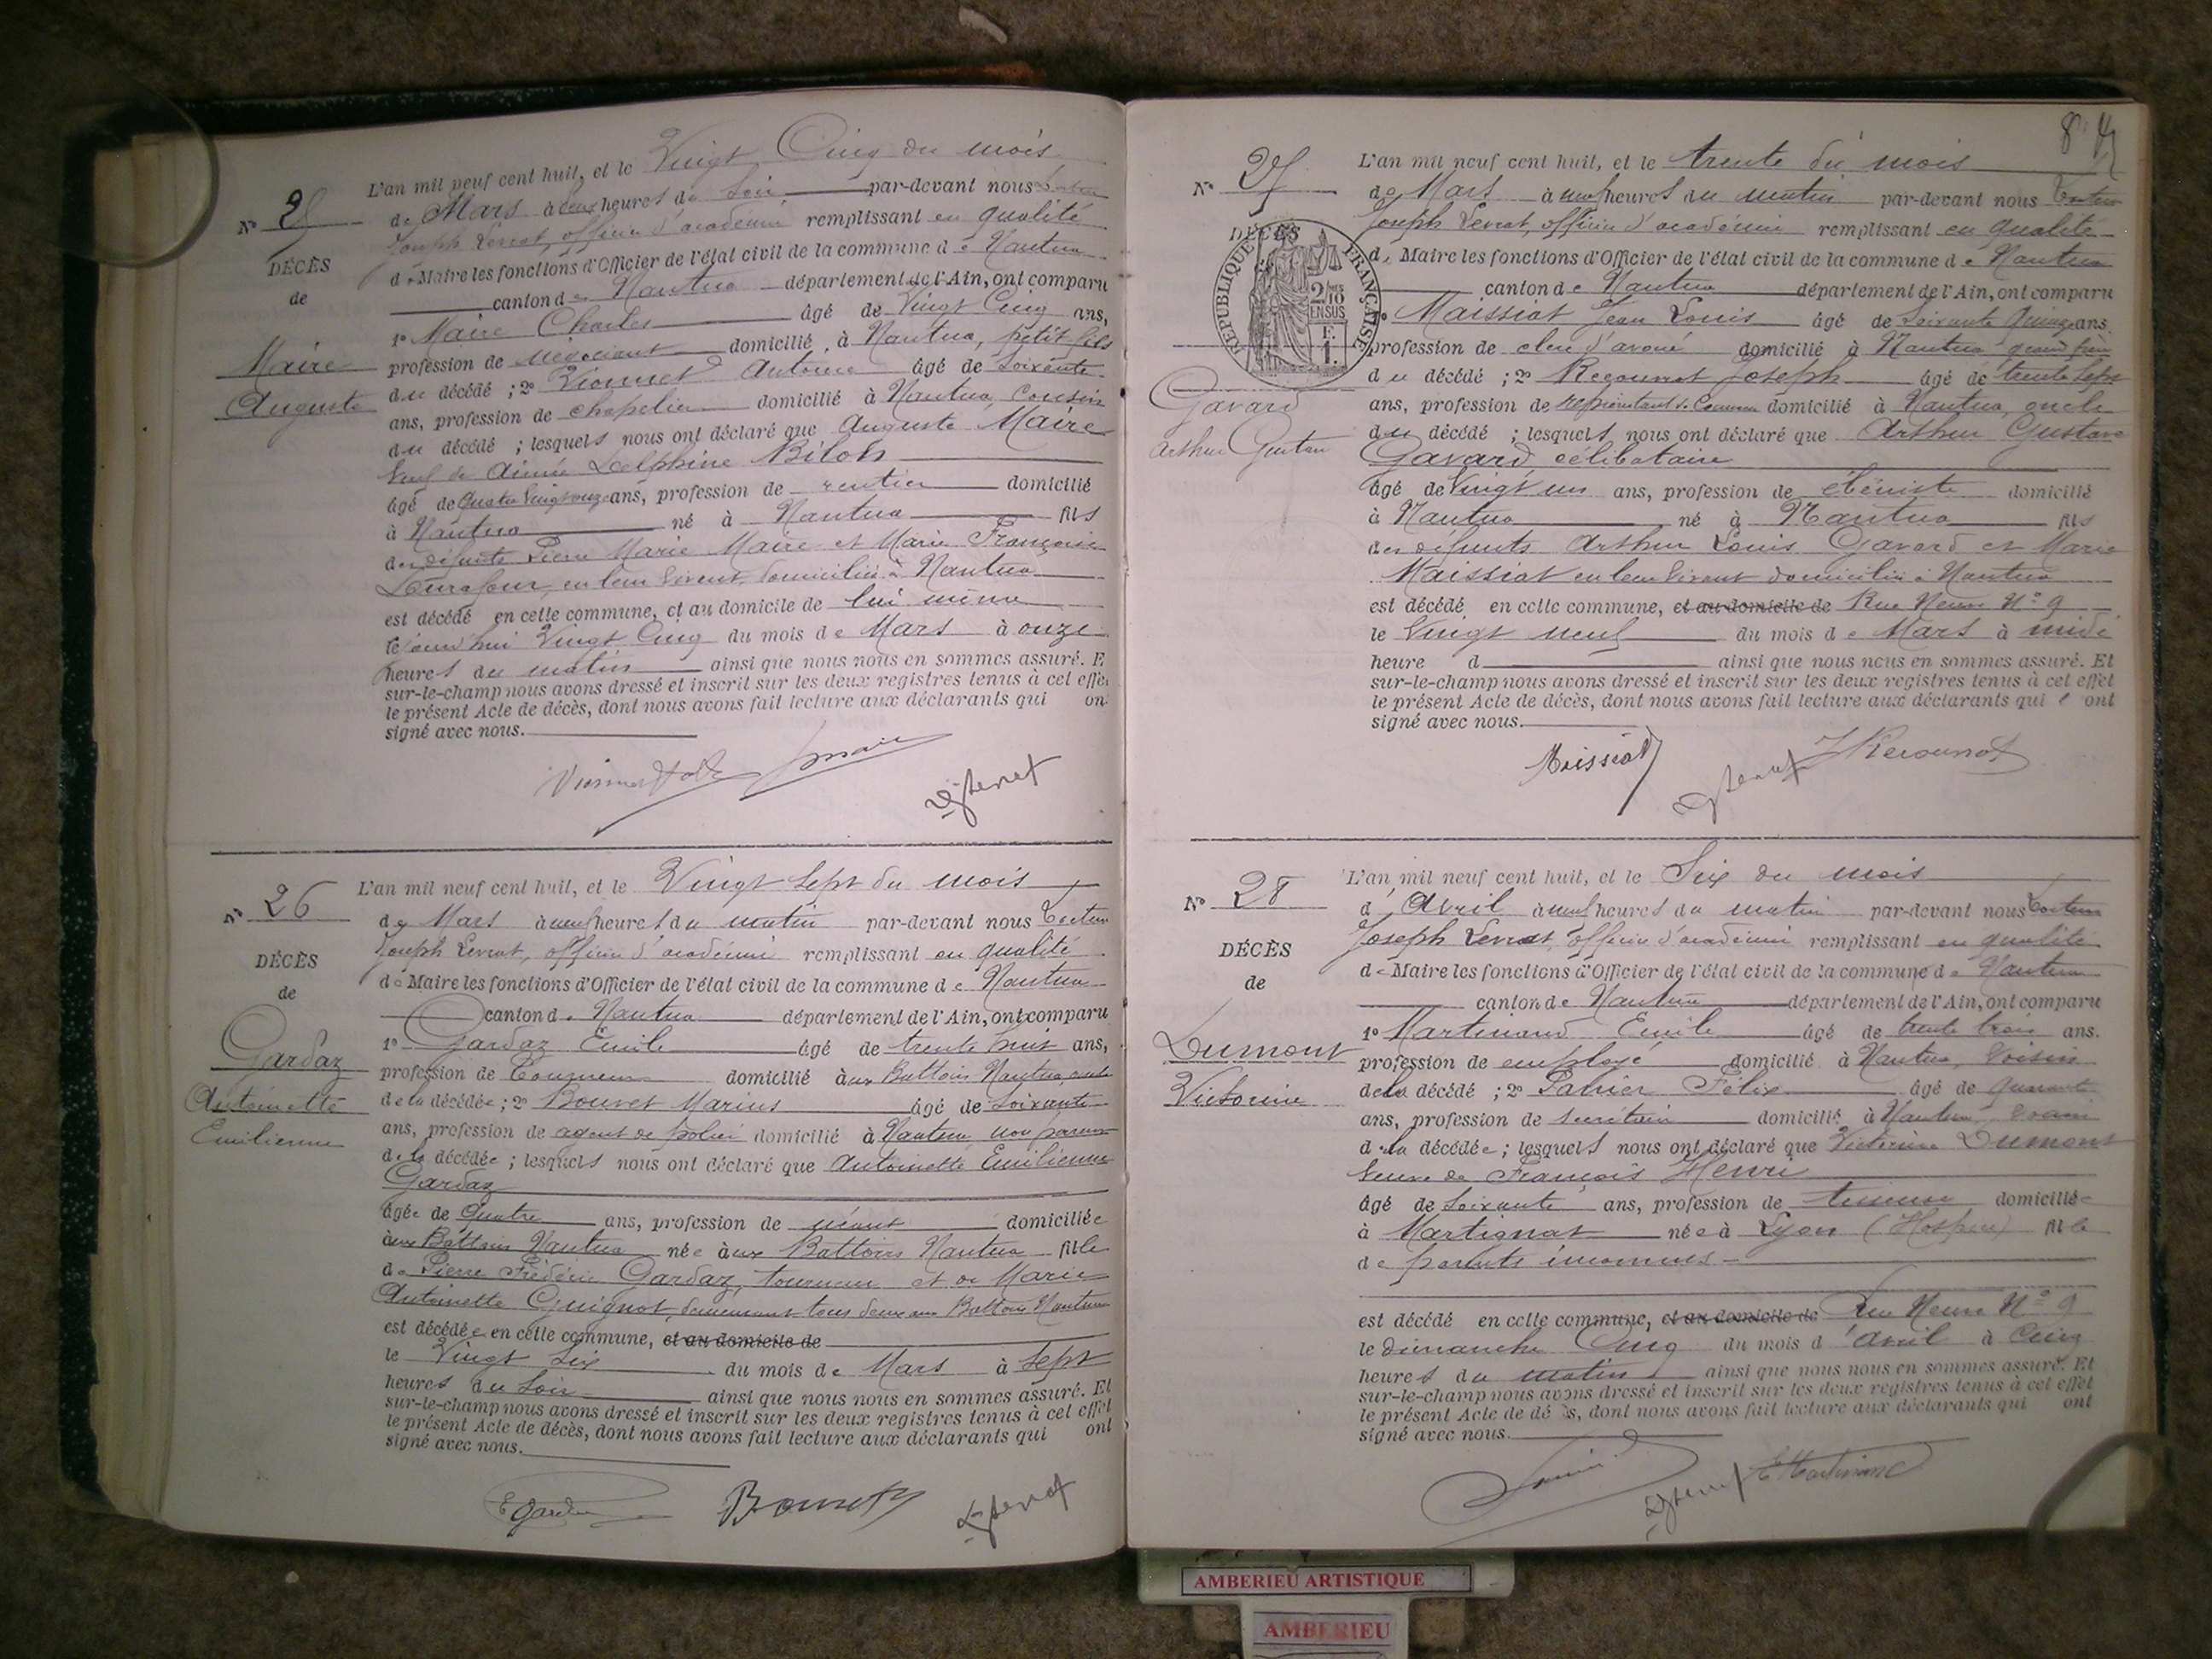 N° 25
DÉCÈS
de
Maire
Auguste
L'an mil neuf cent huit, et le Vingt Cinq du mois
de Mars à deux heures du soir par-devant nous
Joseph Levrat, officier d'académie remplissant en qualité
de Maire les fonctions d'Officier de l'état civil de la commune de Nantua
canton de Nantua département de l'Ain, ont comparu
1° Maire Charles âgé de Vingt Cinq ans,
profession de négociant domicilié à Nantua, petit fils
du décédé ; 2° Vionnet Antoine âgé de Soixante
ans, profession de chapelier domicilié à Nantua, Cousin
du décédé ; lesquels nous ont déclaré que Auguste Maire
Veuf de Aimée Delphine Bilon
âgé de Quatre Vingt onze ans, profession de rentier domicilié
à Nantua né à Nantua fils
des défunts Pierre Marie Maire et Marie Françoise
en leur vivant, domiciliés à Nantua
est décédé en cette commune, et au domicile de lui même
le jourd'hui Vingt Cinq du mois de Mars à onze
heures du matin ainsi que nous nous en sommes assuré. E
sur-le-champ nous avons dressé et inscrit sur les deux registres tenus à cet effet
le présent Acte de décès, dont nous avons fait lecture aux déclarants qui on
signé avec nous.
Maire
Levrat
N° 26
DÉCÈS
de
Gardaz
Antoinette
Emilienne
L'an mil neuf cent huit, et le Vingt Sept du mois
de Mars à neuf heures du matin par-devant nous Docteur
Joseph Levrat, officier d'académie remplissant en qualité
de Maire les fonctions d'Officier de l'état civil de la commune de Nantua
canton de Nantua département de l'Ain, ont comparu
1° Gardaz Emile âgé de trente huit ans,
profession de Tourneur domicilié aux Battoirs Nantua, oncle
de la décédée ; 2° Bouvet Marius âgé de Soixante
ans, profession de agent de police domicilié à Nantua non parent
de la décédée ; lesquels nous ont déclaré que Antoinette Emilienne
Gardaz
âgée de Quatre ans, profession de néant domiciliée
aux Battoirs Nantua née aux Battoirs Nantua fille
de Pierre Frédéric Gardaz, tourneur et de Marie
Antoinette Guignot, demeurant tous deux aux Battoirs Nantua
est décédée en cette commune, et au domicile de
le Vingt Six du mois de Mars à Sept
heures du Soir ainsi que nous nous en sommes assuré. Et
sur-le-champ nous avons dressé et inscrit sur les deux registres tenus à cet effet
le présent Acte de décès, dont nous avons fait lecture aux déclarants qui ont
signé avec nous.
E Gardaz
Bouvet
Levrat
8
N° 27
DÉCÈS
RÉPUBLIQUE FRANÇAISE
2/10
EN SUS
Gavard
Arthur Gustave
L'an mil neuf cent huit, et le trente du mois
de Mars à neuf heures du matin par-devant nous Docteur
Joseph Levrat, officier d'académie remplissant en qualité
de Maire les fonctions d'Officier de l'état civil de la commune de Nantua
canton de Nantua département de l'Ain, ont comparu
1° Maissiat Jean Louis âgé de Soixante Quinze ans
profession de clerc d'avoué domicilié à Nantua grand père
du décédé ; 2° Recourrat Joseph âgé de trente sept
ans, profession de représentant de Commerce domicilié à Nantua, oncle
du décédé ; lesquels nous ont déclaré que Arthur Gustave
Gavard célibataire
âgé de Vingt un ans, profession de ébéniste domicilié
à Nantua né à Nantua fils
des défunts Arthur Louis Gavard et Marie
Maissiat en leur vivant domiciliés à Nantua
est décédé en cette commune, et au domicile de Rue Neuve N° 9
le Vingt neuf du mois de Mars à midi
heure d ainsi que nous nous en sommes assuré. Et
sur-le-champ nous avons dressé et inscrit sur les deux registres tenus à cet effet
le présent Acte de décès, dont nous avons fait lecture aux déclarants qui ont
signé avec nous.
Maissiat
Levrat
N° 28
DÉCÈS
de
Dumont
Victorine
L'an mil neuf cent huit, et le Six du mois
d'Avril à neuf heures du matin par-devant nous Docteur
Joseph Levrat, officier d'académie remplissant en qualité
de Maire les fonctions d'Officier de l'état civil de la commune de Nantua
canton de Nantua département de l'Ain, ont comparu
1° Martinand Emile âgé de trente trois ans.
profession de employé domicilié à Nantua, Voisin
de la décédé ; 2° Félix âgé de quarante
ans, profession de secrétaire domicilié à Nantua, Voisin
de la décédée ; lesquels nous ont déclaré que Victorine Dumont
Veuve de François Henri
âgé de Soixante ans, profession de domiciliée
à Martignat née à Lyon (Hospice) fille
de parents inconnus
est décédé en cette commune, et au domicile de Rue Neuve N° 9
le dimanche Cinq du mois d'avril à Cinq
heures du matin ainsi que nous nous en sommes assuré. Et
sur-le-champ nous avons dressé et inscrit sur les deux registres tenus à cet effet
le présent Acte de décès, dont nous avons fait lecture aux déclarants qui ont
signé avec nous.
Levrat
E Martinand
AMBERIEU ARTISTIQUE
AMBERIEU